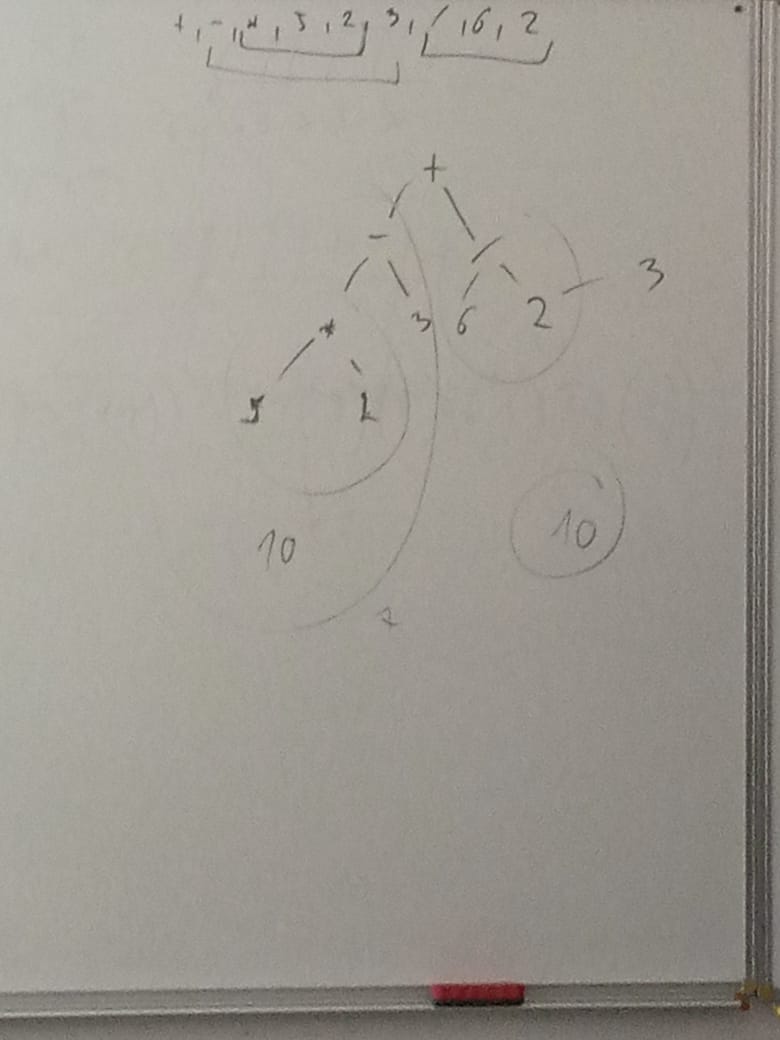 +, -, *, 5, 2, 3, /, 6, 2
+
- /
3
* 3 6 2
5 2
10
10
7